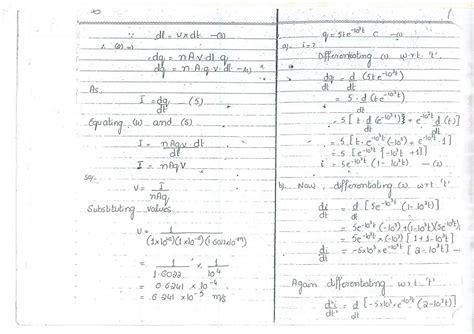 ∵ dl = v×dt —(3)
∴ (2) ⇒
dq = nAv·dt·q
dq = n·A·q·v·dt —(4)
As,
I = dq/dt — (5)
Equating (4) and (5)
I = nAqv·dt/dt
I = nAqV
so,
V = I/nAq
Substituting values
V = 1/(1×10²⁸)(1×10⁻⁵)(1.6022×10⁻¹⁹)
= 1/1.6022 × 1/10⁴
= 0.6241 × 10⁻⁴
= 6.241 ×10⁻⁵ m/s
1
q = 5te^-10³t C —(1)
a). i = ?
Differentiating (1) w.r.t. 't'
dq/dt = d/dt (5te^-10³t)
= 5·d/dt (te^-10³t)
= 5[t·d/dt(e^-10³t) + e^-10³t d/dt(t)]
= 5[t·e^-10³t(-10³) + e^-10³t·1]
= 5[e^-10³t{-10³t+1}]
i = 5e^-10³t(1-10³t) —(2)
b). Now, differentiating (2) w.r.t. 't'
di/dt = d/dt [5e^-10³t(1-10³t)]
= 5e^-10³t(-10³)+(1-10³t)5e^-10³t
= 5e^-10³t×(-10³)[1+1-10³t]
di/dt = -5×10³×e^-10³t[2-10³t] —
Again differentiating w.r.t. 't'
d²i/dt² = d/dt [-5×10³×e^-10³t(2-10³t)]